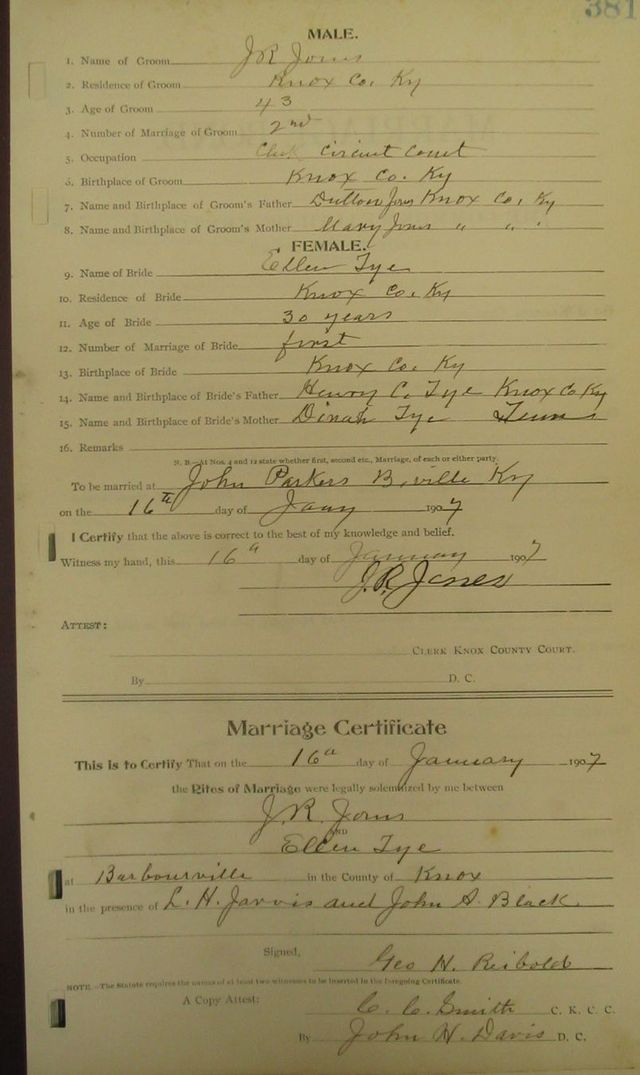 381
MALE.
1. Name of Groom J R Jones
2. Residence of Groom Knox Co, Ky
3. Age of Groom 43
4. Number of Marriage of Groom 2nd
5. Occupation Clerk Circuit Court
6. Birthplace of Groom Knox Co. Ky
7. Name and Birthplace of Groom's Father Dutton Jones Knox Co, Ky
8. Name and Birthplace of Groom's Mother Mary Jones " " "
FEMALE.
9. Name of Bride Ellen Tye
10. Residence of Bride Knox Co, Ky
11. Age of Bride 30 years
12. Number of Marriage of Bride first
13. Birthplace of Bride Knox Co. Ky
14. Name and Birthplace of Bride's Father Henry C. Tye Knox Co Ky
15. Name and Birthplace of Bride's Mother Dinah Tye Tenn
16. Remarks
N. B.—At Nos. 4 and 12 state whether first, second etc., Marriage, of each or either party.
To be married at John Parkers B.ville Ky
on the 16th day of Jany 1907
I Certify that the above is correct to the best of my knowledge and belief.
Witness my hand, this 16" day of January 1907
J.R. Jones
ATTEST:
CLERK KNOX COUNTY COURT.
By D. C.
Marriage Certificate
This is to Certify That on the 16" day of January 1907
the Rites of Marriage were legally solemnized by me between
J. R. Jones
AND
Ellen Tye
at Barbourville in the County of Knox
in the presence of L. H. Jarvis and John A. Black.
Signed, Geo H. Reibold
NOTE.—The Statute requires the names of at least two witnesses to be inserted in the foregoing Certificate.
A Copy Attest: C. C. Smith C. K. C. C.
By John H. Davis D. C.